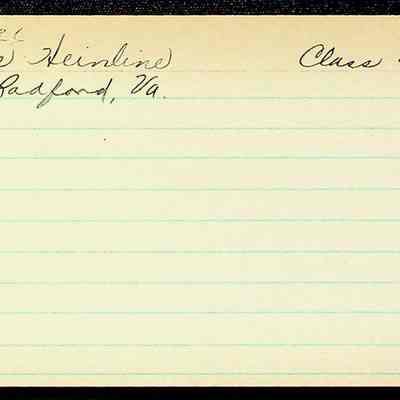 Heinline Class
Radford, Va.